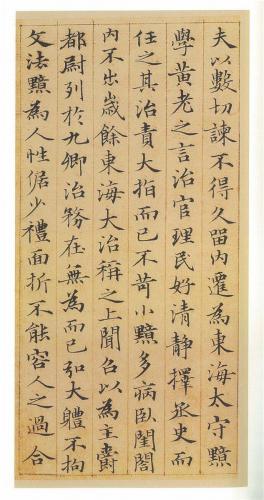 夫以數切諫不得久留內遷為東海太守黯
學黃老之言治官理民好清靜擇丞史而
任之其治責大指而已不苛小黯多病臥閨閤
內不出歲餘東海大治稱之上聞召以為主爵
都尉列於九卿治務在無為而已弘大體不拘
文法黯為人性倨少禮面折不能容人之過合